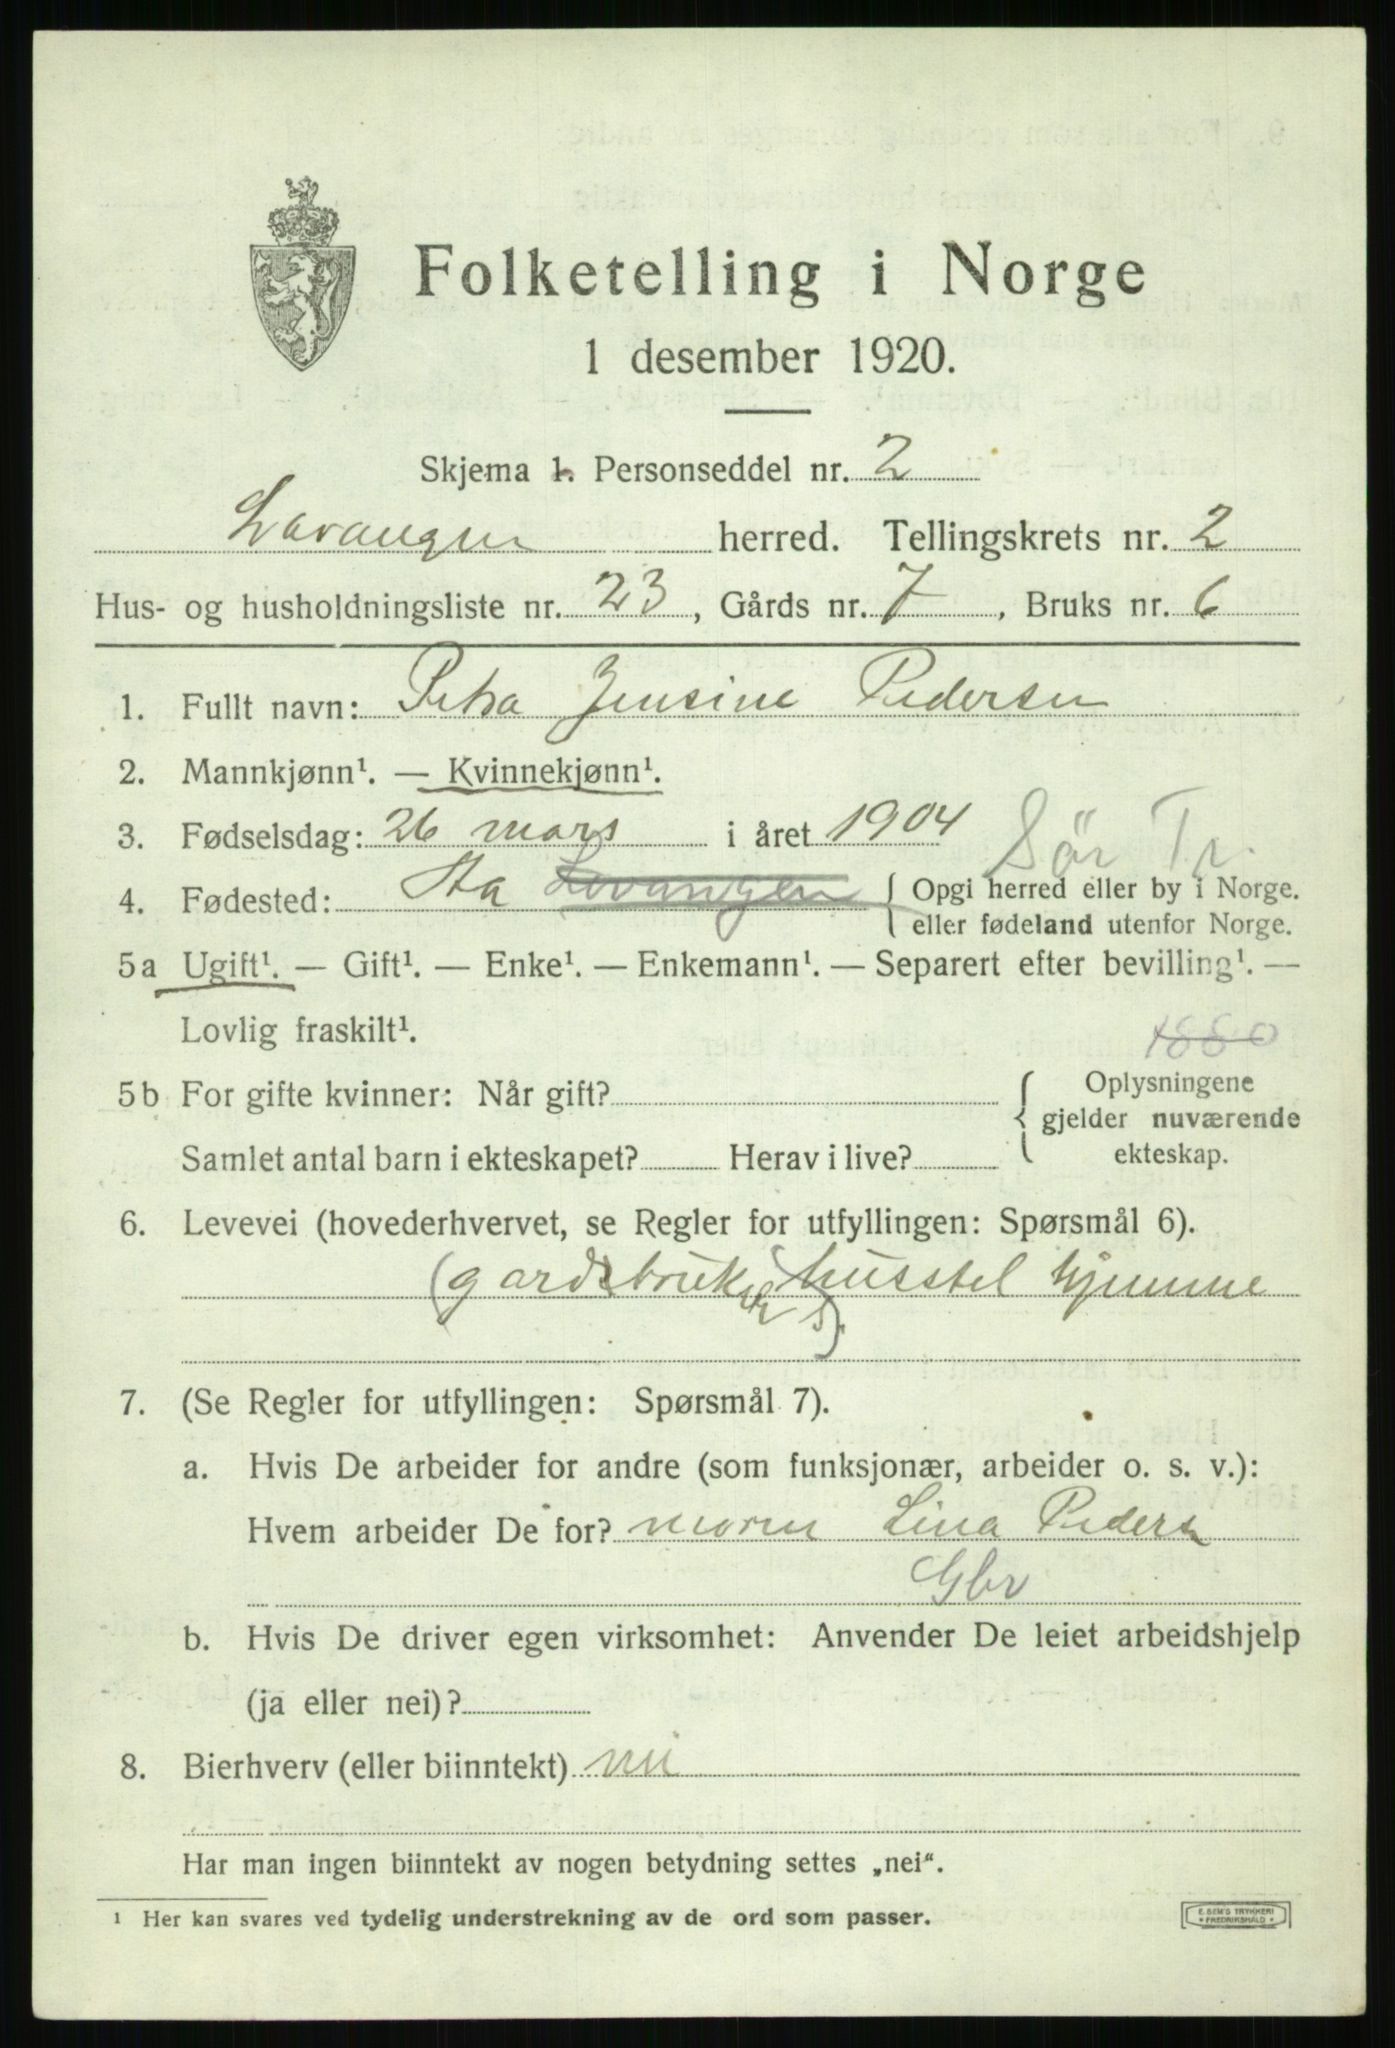 Folketelling i Norge
1 desember 1920.
Skjema 1. Personseddel nr. 2
Lavangen herred. Tellingskrets nr. 2
Hus- og husholdningsliste nr. 23, Gårds nr. 7, Bruks nr. 6
1. Fullt navn: Petra Jensine Pedersen
2. Mannkjønn¹. — Kvinnekjønn¹.
3. Fødselsdag: 26 mars i året 1904 Sör Tr.
4. Fødested: Aa Lavangen { Opgi herred eller by i Norge.
eller fødeland utenfor Norge.
5a Ugift¹. — Gift¹. — Enke¹. — Enkemann¹. — Separert efter bevilling¹. —
Lovlig fraskilt¹. 1880
5b For gifte kvinner: Når gift? { Oplysningene
gjelder nuværende
Samlet antal barn i ekteskapet? Herav i live? ekteskap.
6. Levevei (hovederhvervet, se Regler for utfyllingen: Spørsmål 6).
(gardsbruker husstel hjemme
s).
7. (Se Regler for utfyllingen: Spørsmål 7).
a. Hvis De arbeider for andre (som funksjonær, arbeider o. s. v.):
Hvem arbeider De for? moren Lina Peders
Gbr
b. Hvis De driver egen virksomhet: Anvender De leiet arbeidshjelp
(ja eller nei)?
8. Bierhverv (eller biinntekt) nei
Har man ingen biinntekt av nogen betydning settes „nei“.
¹ Her kan svares ved tydelig understrekning av de ord som passer.
E. SEM'S TRYKKERI
* FREDRIKSHALD *